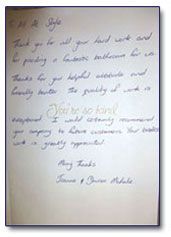 To All At Style
Thank you for all your hard work and
for providing a fantastic bathroom for us.
Thanks for your helpful attitude and
friendly banter. The quality of work is
You're so kind
exceptional. I would certainly recommend
your company to future customers. Your
work is greatly appreciated.
Many Thanks
Joanne &